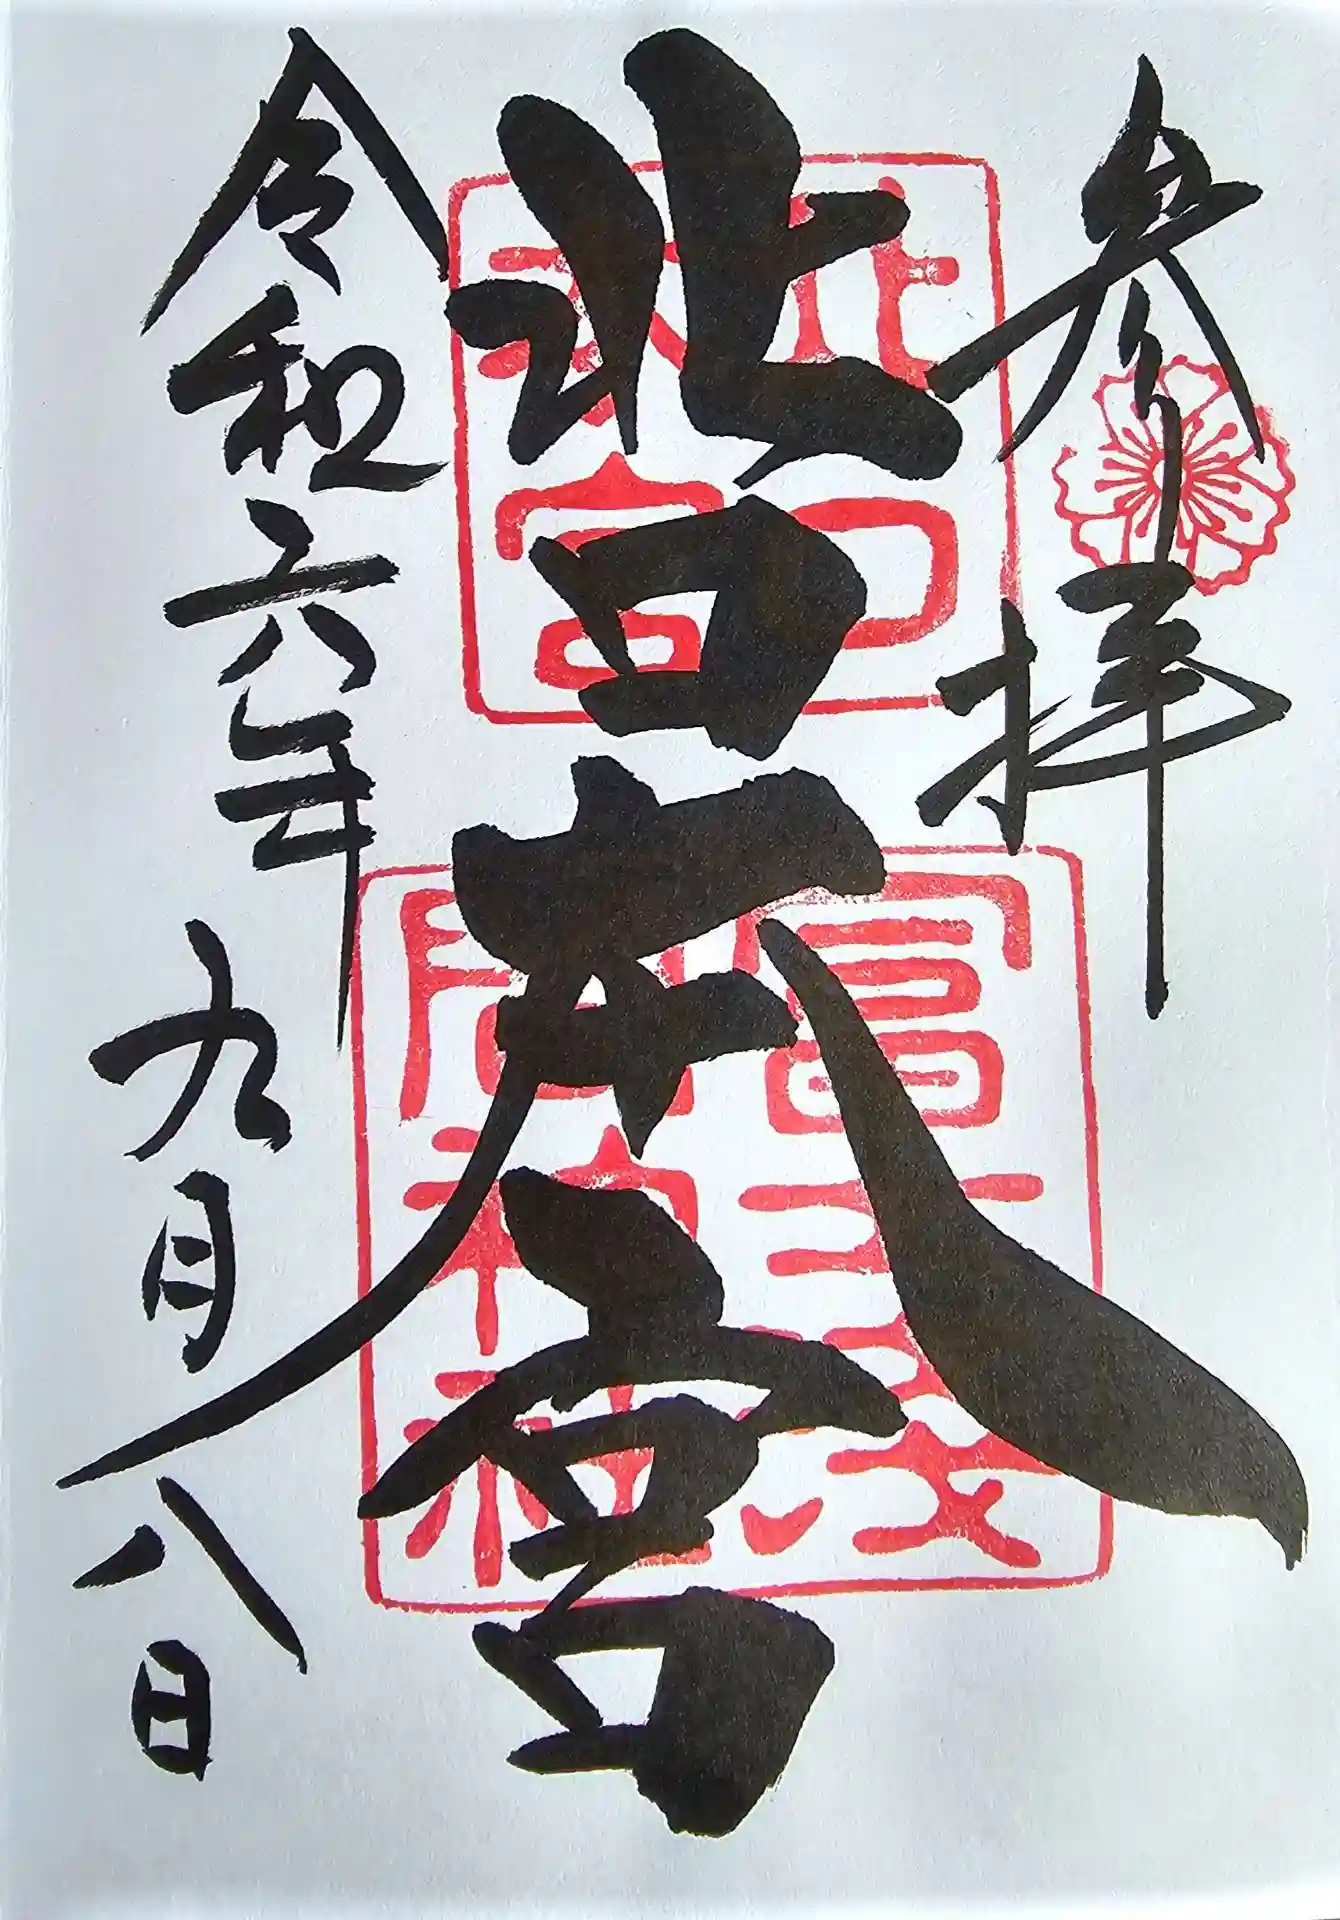 参拝
北口本宮
令和六年九月八日
北口
本宮
冨士浅
間神社